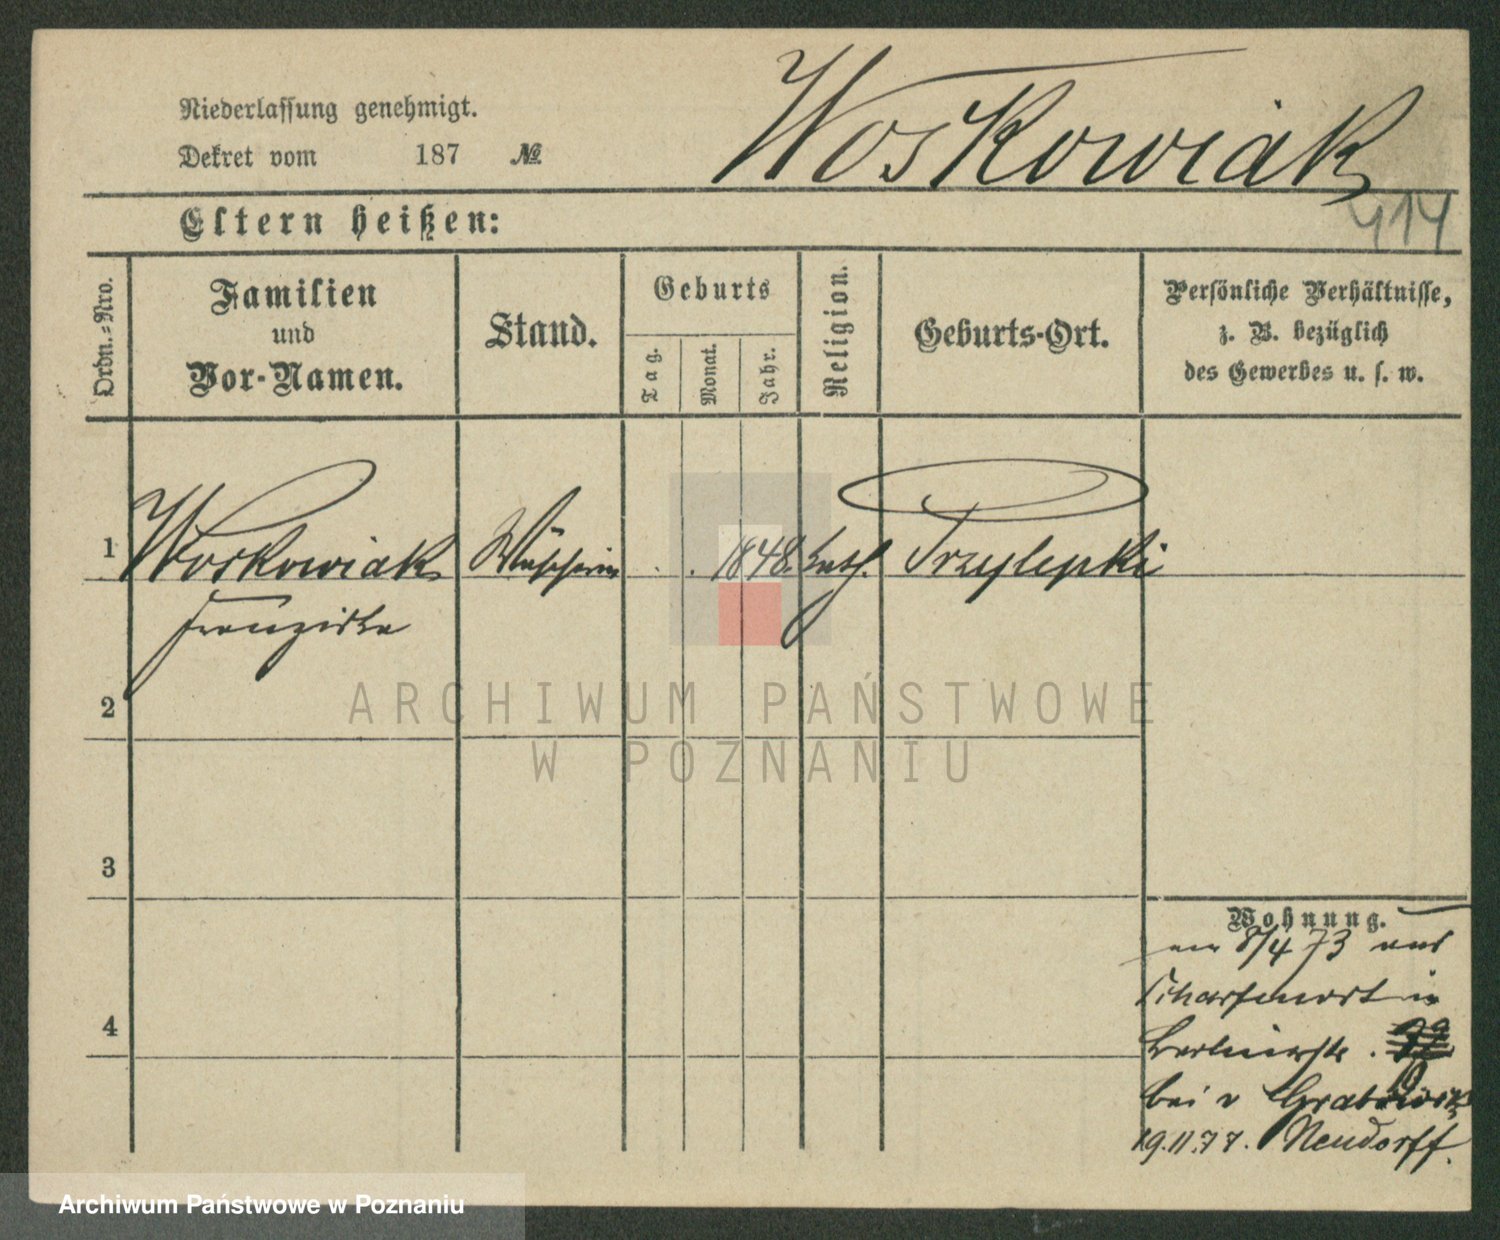 Woskowiak
Niederlassung genehmigt.
Dekret vom 187 №
414
Eltern heißen:
Ordn.=Nro.
Familien
und
Vor-Namen.
Stand.
Geburts
Tag.
Monat.
Jahr.
Religion.
Geburts-Ort.
Persönliche Verhältnisse,
z. B. bezüglich
des Gewerbes u. s. w.
1 Woskowiak 1848. kath. Przylepki
Franziska
2
3
4
Wohnung.
am 8/4 73 aus
Scharfenort in
Berlinerstr.
19
bei v Grabowski
19.11.77. Neudorff.
ARCHIWUM PAŃSTWOWE
W POZNANIU
Archiwum Państwowe w Poznaniu